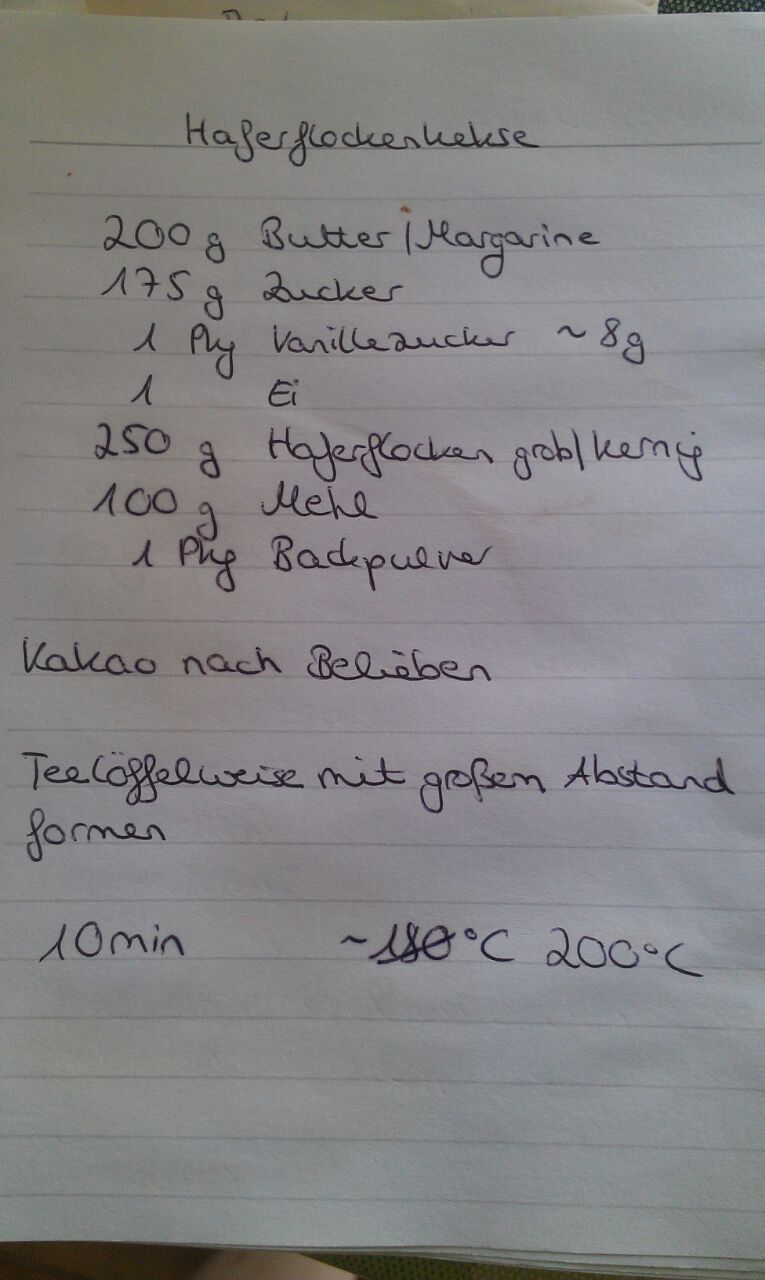 Haferflockenkekse
200 g Butter/Margarine
175 g Zucker
1 Pkg Vanillezucker ~ 8g
1 Ei
250 g Haferflocken grob/kernig
100 g Mehl
1 Pkg Backpulver
Kakao nach Belieben
Teelöffelweise mit großem Abstand
formen
10min ~180°C 200°C